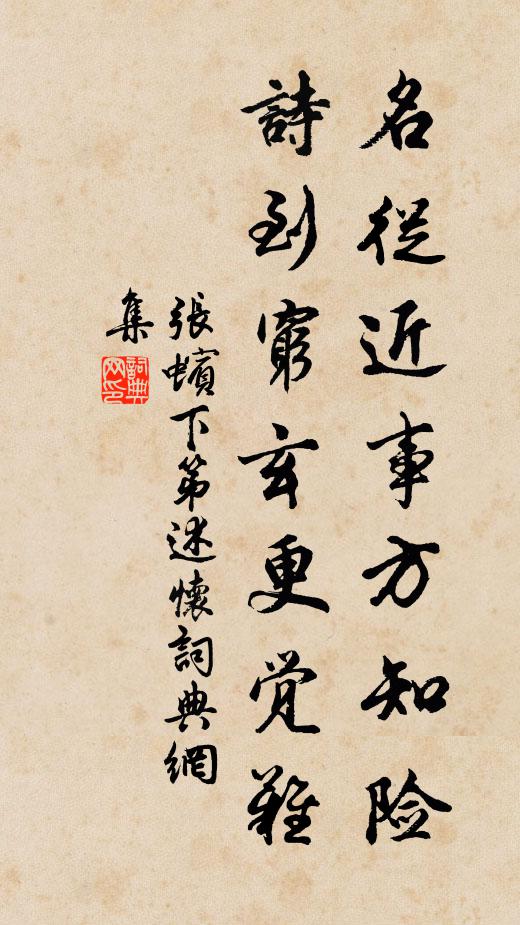 名從近事方知险
詩到窮玄更覚難
張蠙下第述懷詞典網
集
詞典
网印